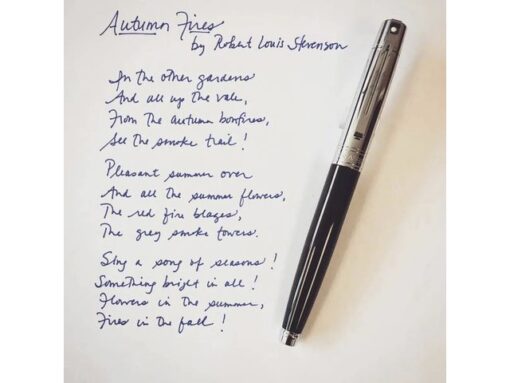 Autumn Fires
by Robert Louis Stevenson
In the other gardens
And all up the vale,
From the autumn bonfires,
See the smoke trail!
Pleasant summer over
And all the summer flowers,
The red fire blazes,
The grey smoke towers.
Sing a song of seasons!
Something bright in all!
Flowers in the summer,
Fires in the fall!